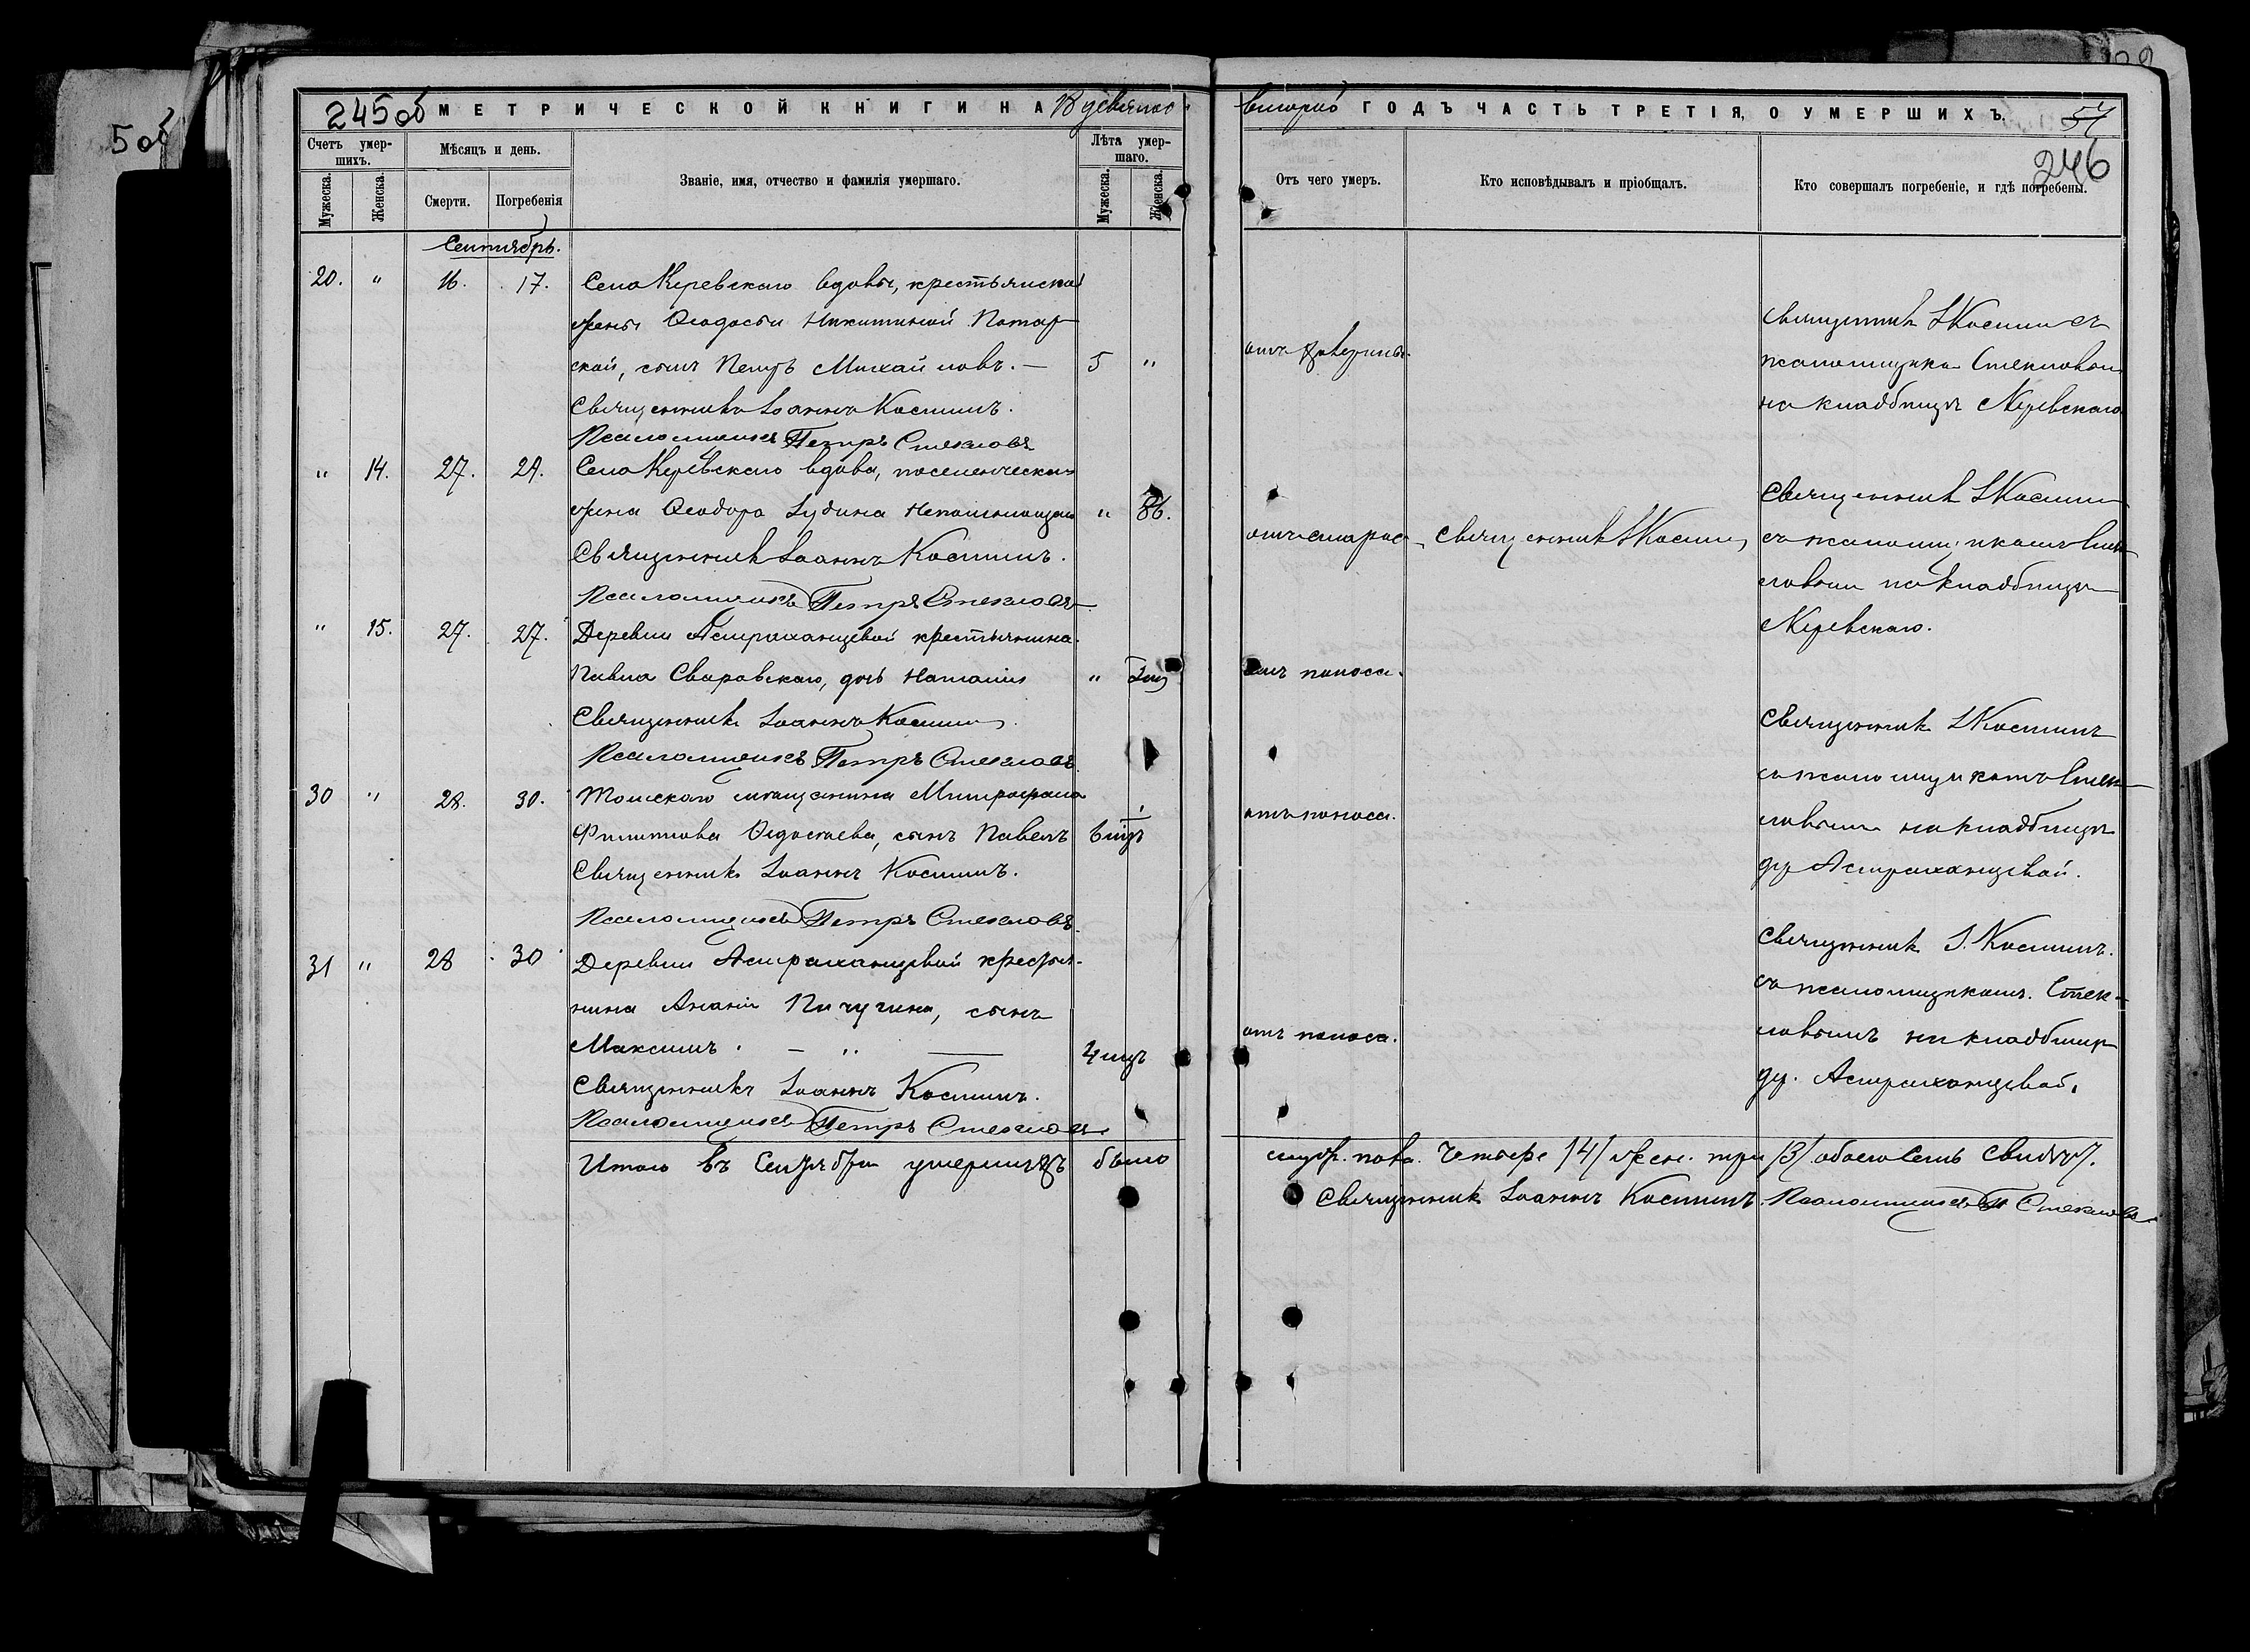 5 об
245 об
МЕТРИЧЕСКОЙ КНИГИ НА 18 девяносто
второй ГОДЪ ЧАСТЬ ТРЕТІЯ, О УМЕРШИХЪ.
246
Счетъ умер-
шихъ.
Мужеска.
Женска.
Мѣсяцъ и день.
Смерти.
Погребенія
Званіе, имя, отчество и фамилія умершаго.
Лѣта умер-
шаго.
Мужеска.
Женска.
Отъ чего умеръ.
Кто исповѣдывалъ и пріобщалъ.
Кто совершалъ погребеніе, и гдѣ погребены.
Сентябрь.
20. " 16. 17. Села Керевскаго вдовы, крестьянской
жены Ѳеодосьи Никитиной
ской, сынъ Петръ Михайловъ. — 5 "
Священникъ Іоаннъ Косминъ.
Псаломщикъ Петръ Стекловъ
Священникъ І Космин съ
псаломщикомъ Стекловым
на кладбищѣ с Керевскаго
" 14. 27. 29. Села Керевскаго вдова, поселенческая
жена Ѳеодора Іудина Непомнющая " 86.
Священникъ Іоаннъ Космин.
Псаломщикъ Петръ Стекловъ
отъ старос. Священникъ І Космин
Священникъ І Космин
съ псаломщикомъ Стек-
ловым на кладбищѣ
с Керевскаго.
" 15. 27. 27. Деревни Астраханцевой крестьянина
Павла Сваровскаго, дочь Наталія "
Священникъ Іоаннъ Космин
Псаломщикъ Петръ Стекловъ.
отъ поноса.
Священникъ І Космин
съ псаломщикомъ Стек-
ловым на кладбищѣ
дер Астраханцевой.
30 " 28. 30. Томскаго мѣщанина Митрофана
Филиппова Ѳедосѣева, сынъ Павелъ 6 мцъ
Священникъ Іоаннъ Космин.
Псаломщикъ Петръ Стекловъ.
отъ поноса.
31 " 28 30 Деревни Астраханцевой крестья-
нина Ананіи Пичугина, сынъ
Максимъ. — " — 4 мцъ
Священникъ Іоаннъ Космин.
Псаломщикъ Петръ Стекловъ.
отъ поноса.
Священникъ І. Космин.
съ псаломщикомъ. Стек-
ловымъ на кладбищѣ
дер. Астраханцевой.
Итого въ Сентябрѣ умершихъ было
муж. пола. Четыре /4/ жен. три /3/ обоего Семь
Священникъ Іоаннъ Космин. Псаломщикъ П Стекловъ